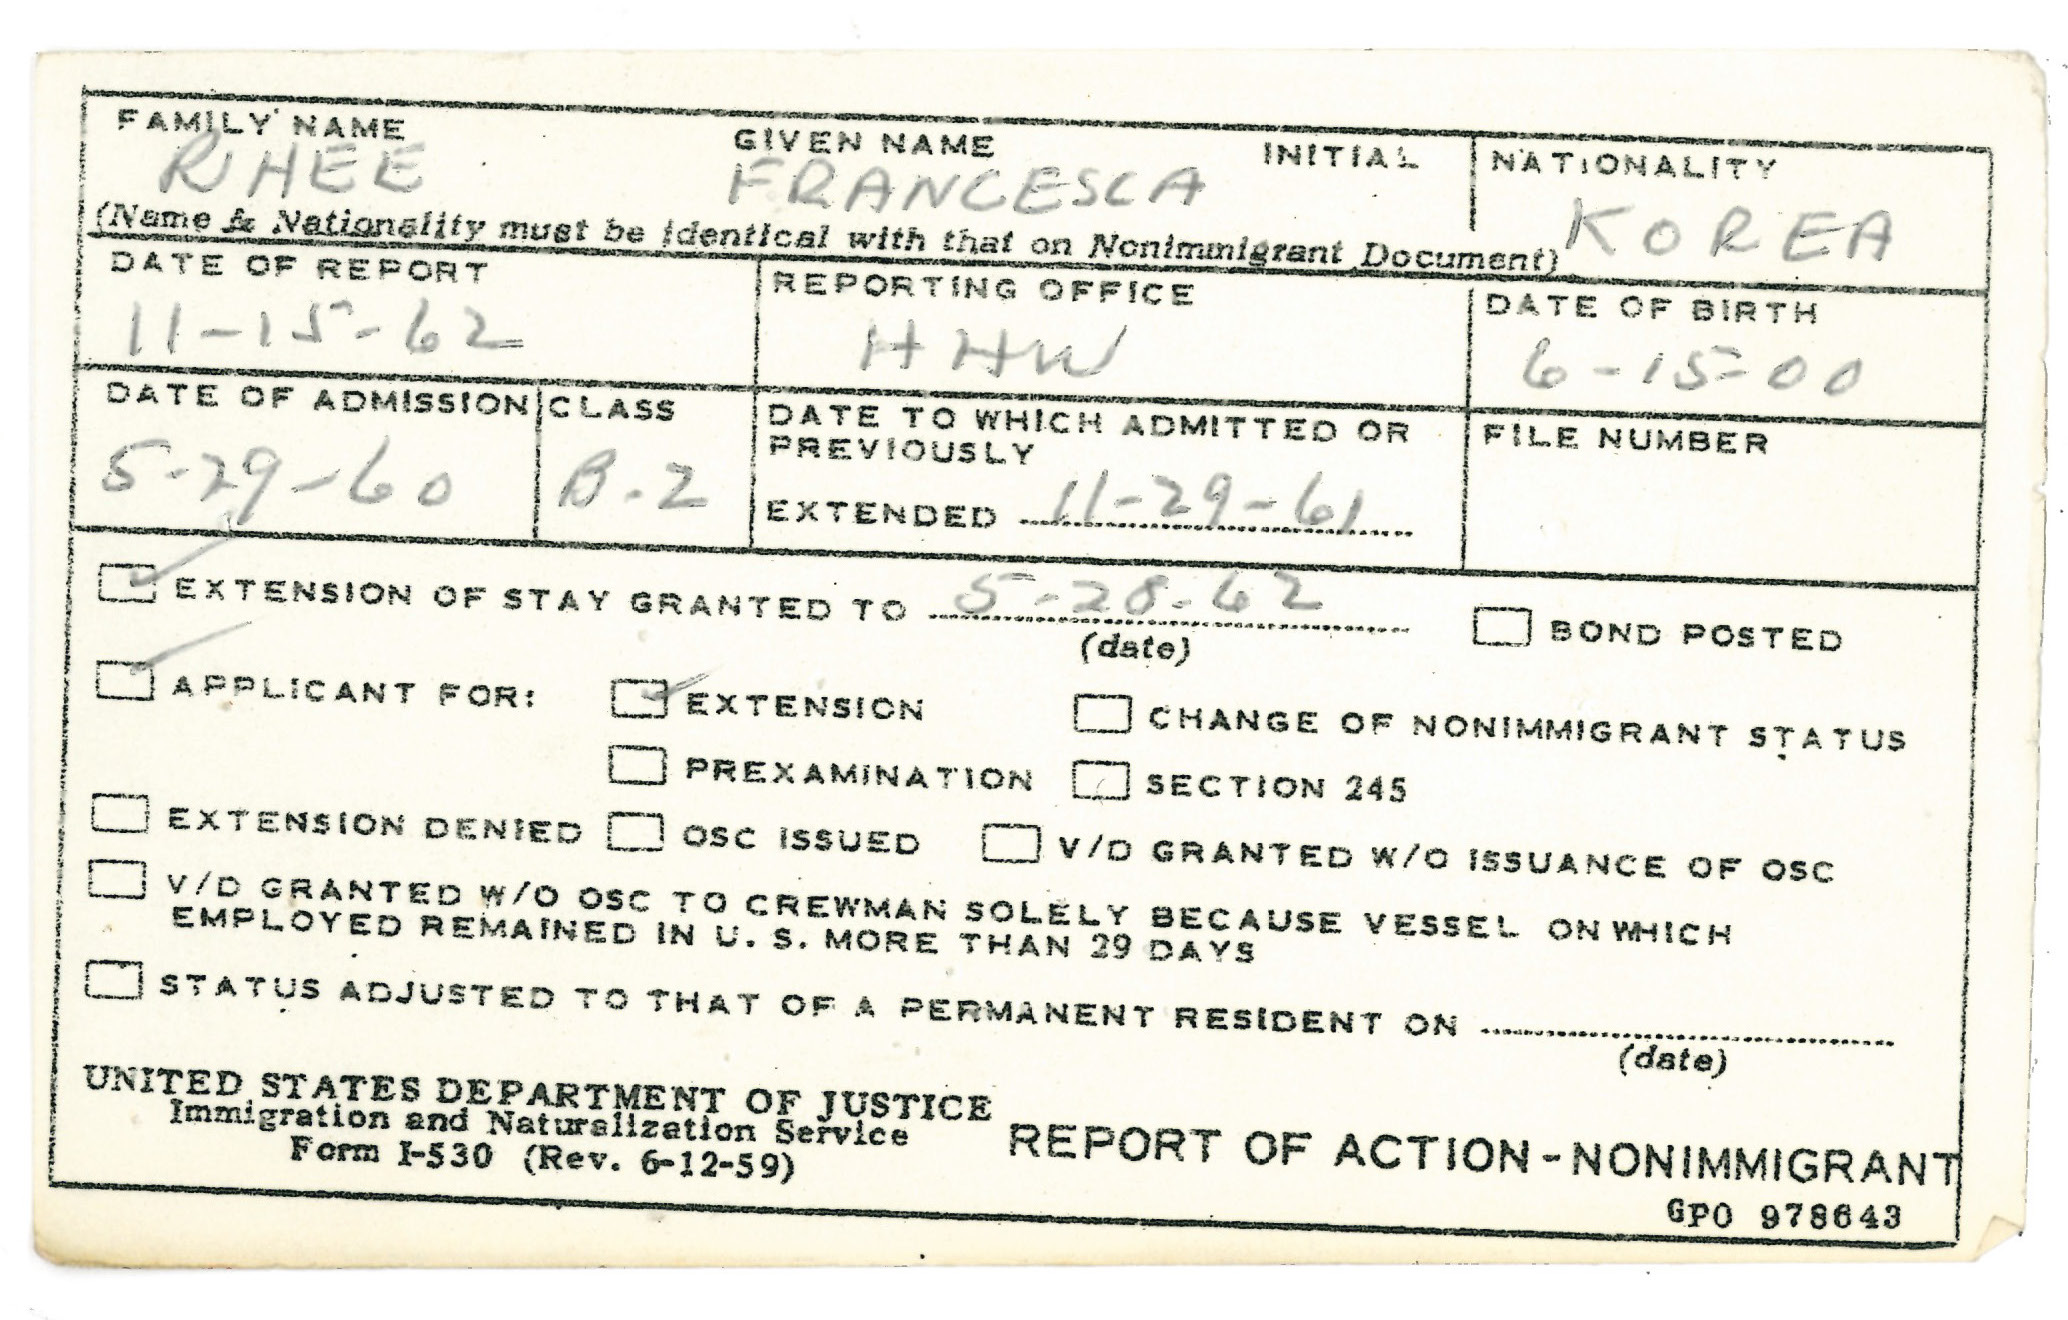 FAMILY NAME GIVEN NAME INITIAL NATIONALITY
RHEE FRANCESCA KOREA
(Name & Nationality must be identical with that on Nonimmigrant Document)
DATE OF REPORT REPORTING OFFICE DATE OF BIRTH
11-15-62 HHW 6-15-00
DATE OF ADMISSION CLASS DATE TO WHICH ADMITTED OR FILE NUMBER
PREVIOUSLY
5-29-60 B-2 EXTENDED 11-29-61
EXTENSION OF STAY GRANTED TO 5-28-62 BOND POSTED
(date)
APPLICANT FOR: EXTENSION CHANGE OF NONIMMIGRANT STATUS
PREXAMINATION SECTION 245
EXTENSION DENIED OSC ISSUED V/D GRANTED W/O ISSUANCE OF OSC
V/D GRANTED W/O OSC TO CREWMAN SOLELY BECAUSE VESSEL ON WHICH
EMPLOYED REMAINED IN U. S. MORE THAN 29 DAYS
STATUS ADJUSTED TO THAT OF A PERMANENT RESIDENT ON
(date)
UNITED STATES DEPARTMENT OF JUSTICE
Immigration and Naturalization Service
Form I-530 (Rev. 6-12-59)
REPORT OF ACTION - NONIMMIGRANT
GPO 978643